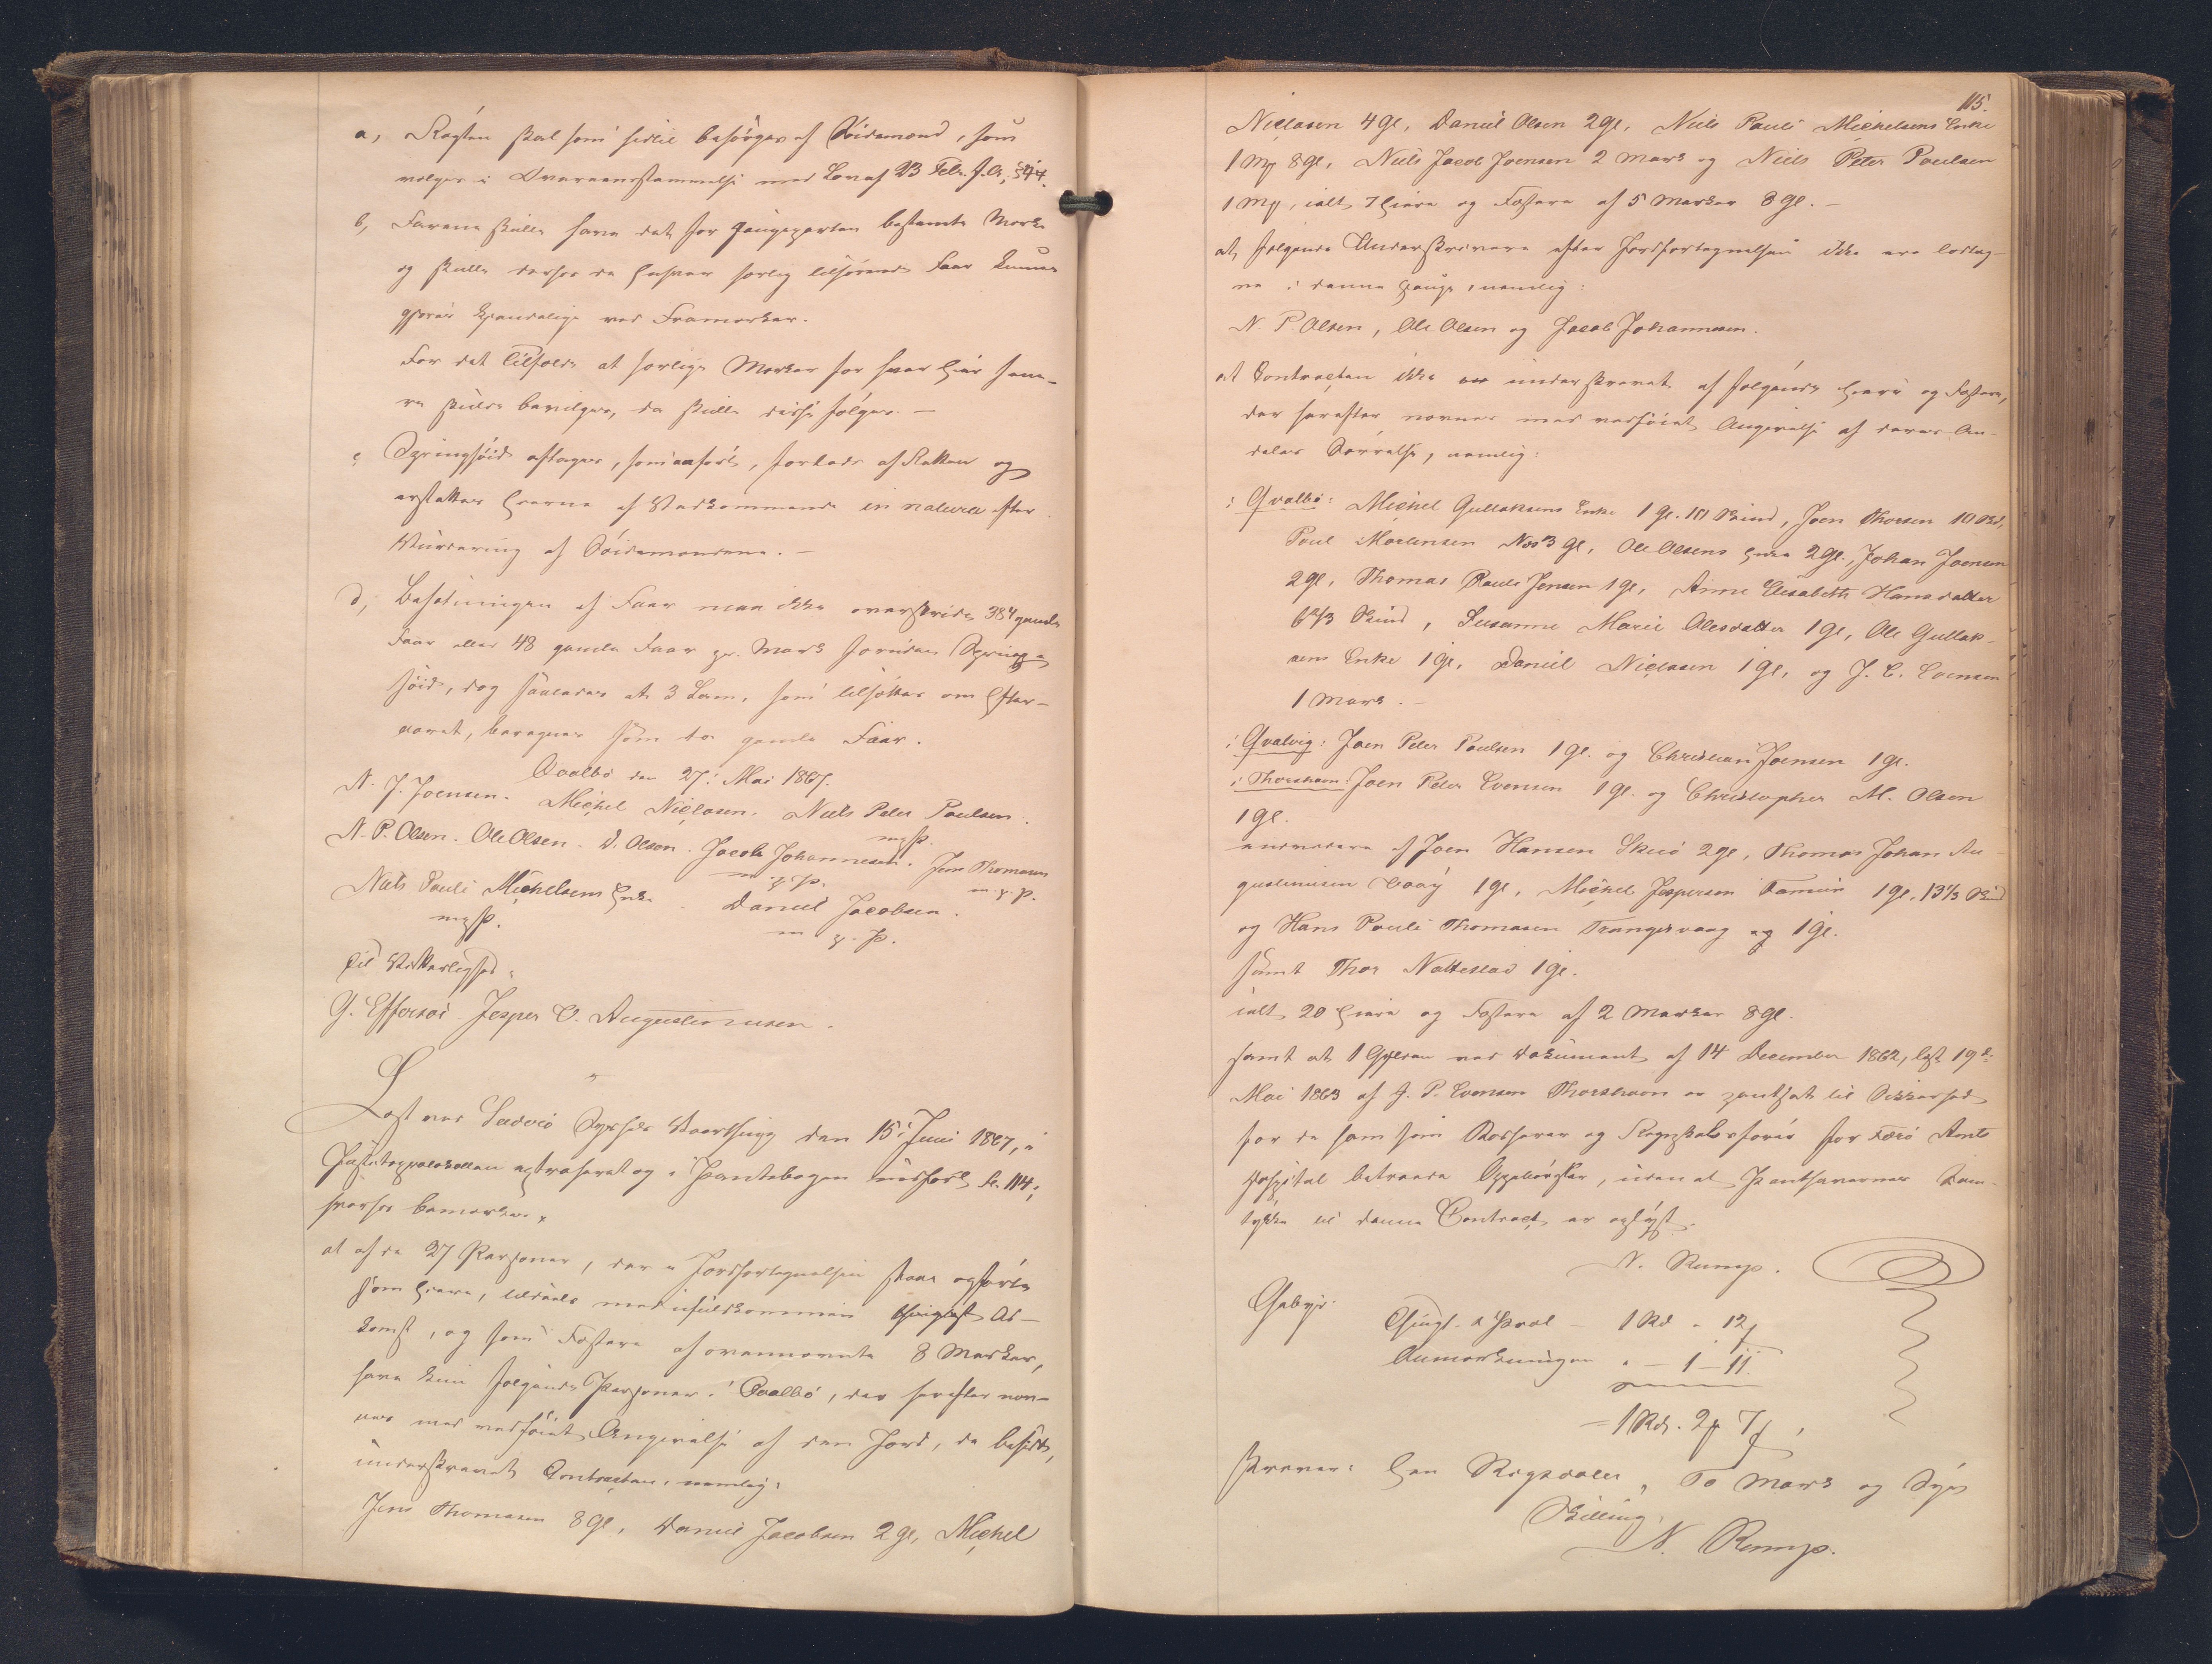 a, Røgten skal som hidtil besørges af Söidemænd, som
vælges i Overeensstemmelse med Lov af 23 Febr. f. A., § 44.
b, Faarene skulle have det for Haugeparten bestemte Mærke
og skulle derhos de Enhver særlig tilhørende Faar kunne
gjøres kjendelige ved Framærker.
For det Tilfælde at særlige Mærker for hver Eier sene-
re skulde bevilges, da skulle disse følges. –
c, Springsöid aftages, som anført, forlods af Retten og
erstattes Eierne af Vedkommende in natura efter
Vurdering af Söidemændene. –
d, Besætningen af Faar maa ikke overskride 384 gamle
Faar eller 48 gamle Faar pr. Mark foruden Spring-
söid, dog saaledes at 3 Lam, som tilsættes om Efter-
aaret, beregnes som to gamle Faar.
Qvalbø den 27. Mai 1867.
N. J. Joensen. Michel Niclasen. Niels Peter Poulsen.
m. p. P.
N. P. Olsen. Ole Olsen. D. Olsen. Jacob Johannesen. Jens Thomasen
m. p. P. m. p. P.
Niels Pauli Michelsens Enke. Daniel Jacobsen.
m. p. P. m. p. P.
Til Vitterlighed:
G. Effersöe. Jesper C. Augustinussen.
Læst ved Suderö Syssels Vaarthing den 15. Juni 1867, i
Justitsprotokollen extraheret og i Pantebogen indført fol. 114;
hvorhos bemærkes,
at af de 27 Personer, der i Jordfortegnelsen staae opførte
som Eiere, tildeels med ufuldkommen thinglæst Ad-
komst, og som Fæstere af ovennævnte 8 Marker,
have kun følgende Personer i Qvalbö, der herefter næv-
nes med vedföiet Angivelse af den Jord, de besidde,
underskrevet Contracten, nemlig:
Jens Thomasen 8 Gl., Daniel Jacobsen 2 Gl., Michel
115.
Niclasen 4 Gl., Daniel Olsen 2 Gl., Niels Pauli Michelsens Enke
1 Mk 8 Gl., Niels Jacob Joensen 2 Mark og Niels Peter Poulsen
1 Mk, ialt 7 Eiere og Fæstere af 5 Marker 8 Gl. –
at følgende Underskrivere efter Jordfortegnelsen ikke ere lodtag-
ne i denne Hauge, nemlig:
N. P. Olsen, Ole Olsen og Jacob Johannesen.
at Contracten ikke er underskrevet af følgende Eiere og Fæstere,
der herefter nævnes med vedföiet Angivelse af deres An-
deles Størrelse, nemlig:
i Qvalbö: Michel Gullaksens Enke 1 Gl. 10 Skind, Joen Thorsen 10 Skd,
Poul Mortensen Næs 3 Gl., Ole Olsens Enke 2 Gl., Johan Joensen
2 Gl., Thomas Pauli Jensen 1 Gl., Anne Elisabeth Hansdatter
6 2/3 Skind, Susanne Marie Olesdatter 1 Gl, Ole Gullak-
sens Enke 1 Gl., Daniel Niclasen 1 Gl., og J. C. Evensen
1 Mark. –
i Qvalvig: Joen Peter Poulsen 1 Gl. og Christian Joensen 1 Gl.
i Thorshavn: Joen Peter Evensen 1 Gl. og Christopher M. Olsen
1 Gl.
endvidere af Joen Hansen Skuö 2 Gl., Thomas Johan Au-
gustinusen Vaag 1 Gl., Michel Jespersen Famien 1 Gl. 13 1/3 Skind
og Hans Pauli Thomasen Trangisvaag og 1 Gl.
samt Thor Nattestad 1 Gl.
ialt 20 Eiere og Fæstere af 2 Marker 8 Gl.
samt at 1 Gylden ved Dokument af 14 December 1862, læst 19de
Mai 1863 af J. P. Evensen Thorshavn er pantsat til Sikkerhed
for de ham som Kasserer og Regnskabsfører for Færö Amts
Hospital betroede Oppebørsler, uden at Panthavernes Sam-
tykke til denne Contract er oplyst.
N. Rump.
Gebyr:
Thingl. & Prot – 1 Rd. " 12 ß
Anmærkningen " – 1 – 11.
= 1 Rd. 2 Mk 7 ß,
skriver: Een Rigsdaler, To Mark og Syv
Skilling,
N. Rump.